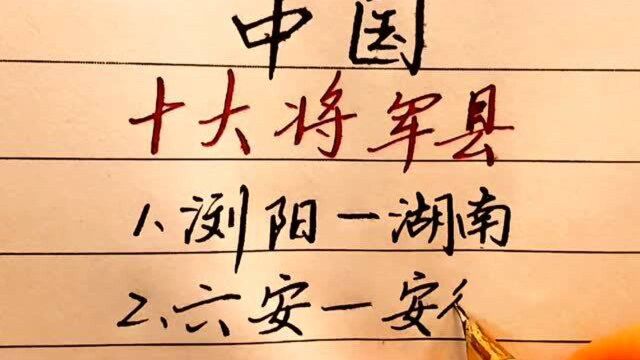 中国
十大将军县
1、浏阳一湖南
2、六安一安